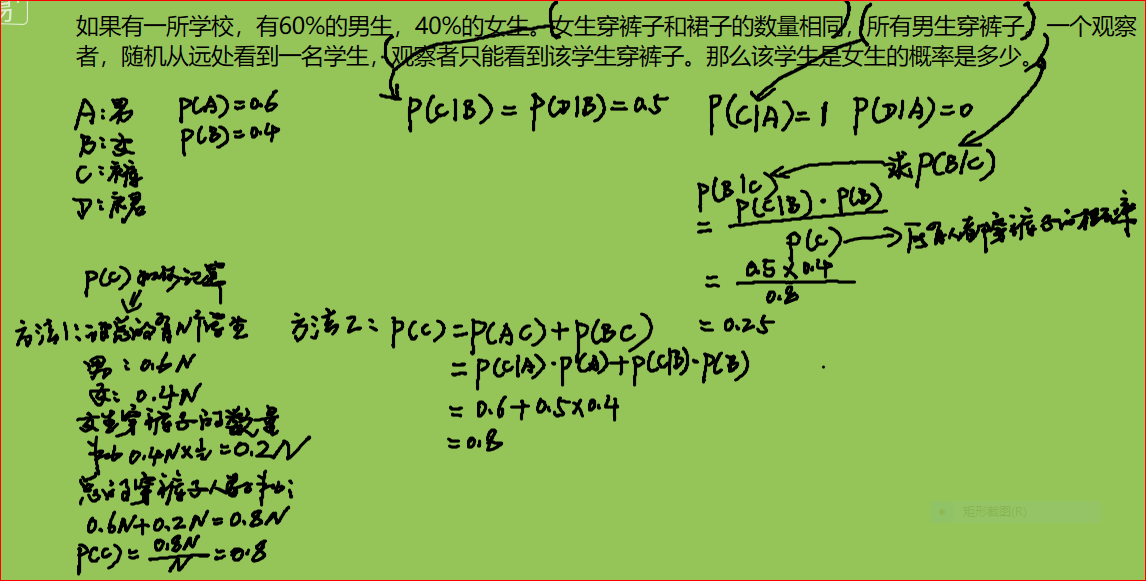 如果有一所学校，有60%的男生，40%的女生。女生穿裤子和裙子的数量相同，所有男生穿裤子，一个观察
者，随机从远处看到一名学生，观察者只能看到该学生穿裤子。那么该学生是女生的概率是多少。
A:男 P(A)=0.6
B:女 P(B)=0.4
C:裤
D:裙
P(C|B)=P(D|B)=0.5 P(C|A)=1 P(D|A)=0
求P(B|C)
P(B|C)
=P(C|B)·P(B)
P(C) 所有人都穿裤子的概率
=0.5×0.4
0.8
=0.25
P(C)如何计算
方法1:设总的有N个学生
男:0.6N
女:0.4N
女生穿裤子的数量
为0.4N×½=0.2N
总的穿裤子人数为:
0.6N+0.2N=0.8N
P(C)=0.8N
N
=0.8
方法2:P(C)=P(AC)+P(BC)
=P(C|A)·P(A)+P(C|B)·P(B)
=0.6+0.5×0.4
=0.8
矩形截图(R)